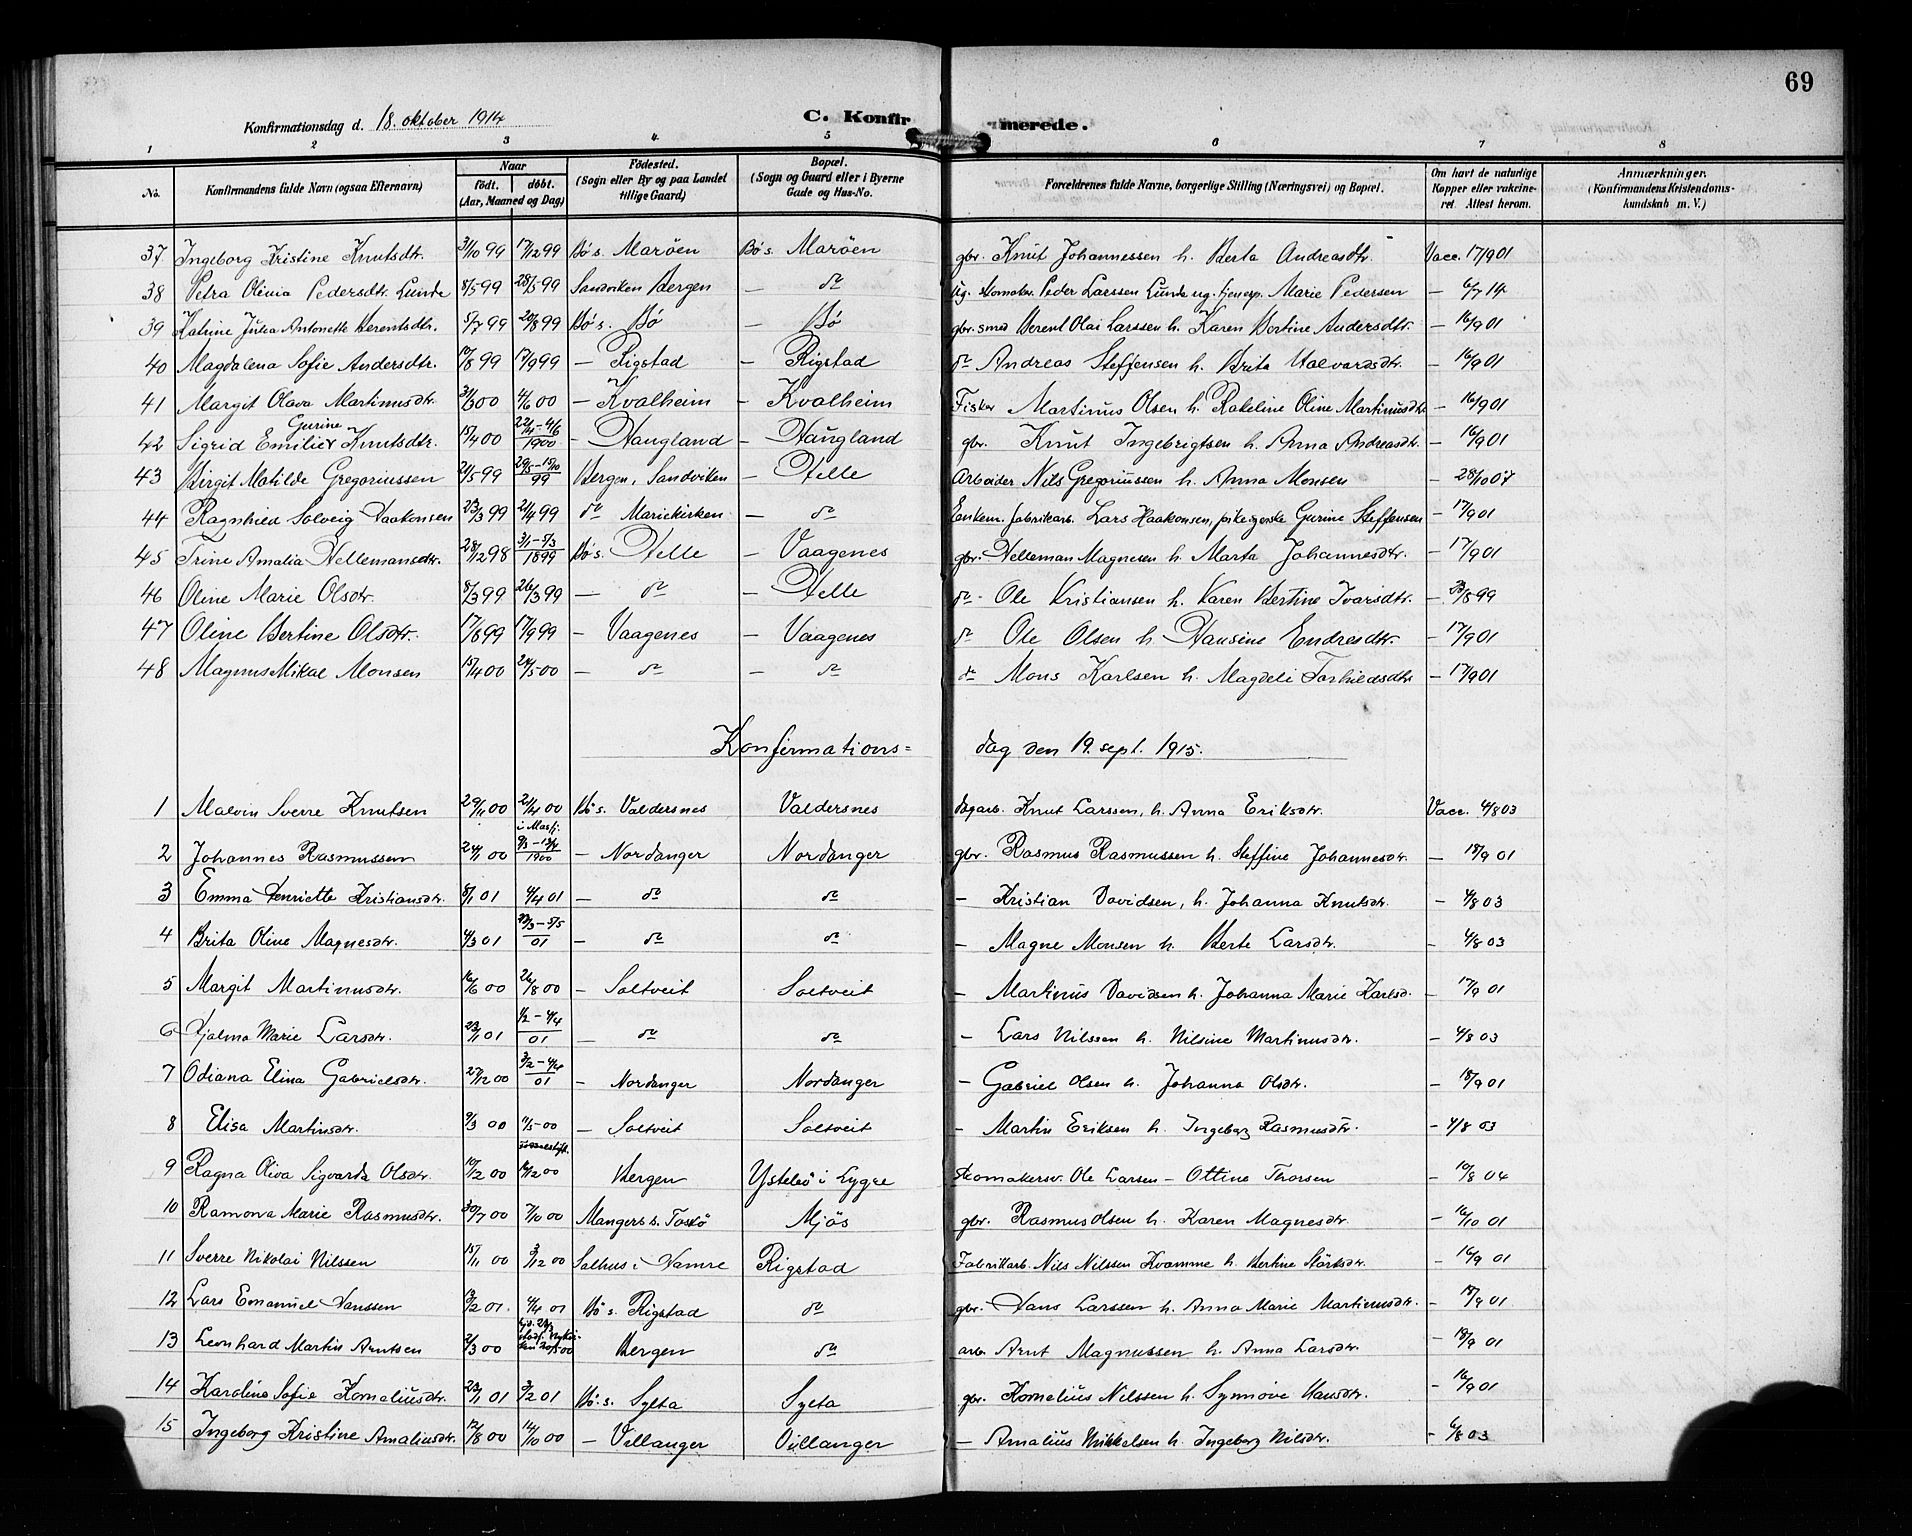 69
Konfirmationsdag d. 18. oktober 1914 C. Konfirmerede.
1 2 3 4 5 6 7 8
No. Konfirmandens fulde Navn (ogsaa Efternavn) Naar født. døbt. (Aar, Maaned og Dag) Fødested. (Sogn eller By og paa Landet tillige Gaard) Bopæl. (Sogn og Gaard eller i Byerne Gade og Hus-No. Forældrenes fulde Navne, borgerlige Stilling (Næringsvei) og Bopæl. Om havt de naturlige Kopper eller vakcineret. Attest herom. Anmærkninger. (Konfirmandens Kristendomskundskab m. V.)
37 Ingeborg Kristine Knutsdtr. 31/10 99 17/12 99 Bø s. Marøen Bø s. Marøen gbr. Knut Johannessen h. Berta Andreasdtr. Vacc. 17/9 01
38 Petra Olivia Pedersdtr. Lunde 8/5 99 28/5 99 Sandviken Bergen — do ug. skomaker Peder Larssen Lunde ug. tjenesp. Marie Pedersen — 6/7 14
39 Katrine Julia Antonette Berentsdtr. 5/7 99 20/8 99 Bø s. Bø — Bø gbr. smed Berent Olai Larssen h. Karen Bertine Andersdtr. — 16/9 01
40 Magdalena Sofie Andersdtr. 10/8 99 17/9 99 — Rigstad — Rigstad do Andreas Steffensen h. Brita Halvardsdtr. — 16/9 01
41 Margit Olava Martinusdtr. 31/3 00 4/6 00 — Kvalheim — Kvalheim Fisker Martinus Olsen h. Rakeline Oline Martinusdtr. — 16/9 01
42 Sigrid Emilie Gurine Knutsdtr. 15/4 00 22/4–4/6 1900 — Haugland — Haugland gbr. Knut Ingebrigtsen h. Anna Andreasdtr. — 16/9 01
43 Birgit Matilde Gregoriussen 21/5 99 29/5–15/10 99 Bergen, Sandviken — Helle Arbeider Nils Gregoriussen h. Anna Monsen — 28/10 07
44 Ragnhild Solveig Haakonsen 23/3 99 24/4 99 do Mariekirken — do Enkem. fabrikarb. Lars Haakonsen, pike Gurine Steffensen — 17/9 01
45 Trine Amalia Hellemansdtr. 28/12 98 3/1–5/3 1899 Bø s. Helle — Vaagenes gbr. Helleman Magnesen h. Marta Johannesdtr. — 17/9 01
46 Oline Marie Olsdtr. 8/3 99 26/3 99 — do — Helle do Ole Kristiansen h. Karen Bertine Ivarsdtr. — /8 99
47 Oline Bertine Olsdtr. 17/8 99 17/9 99 — Vaagenes — Vaagenes do Ole Olsen h. Hansine Endresdtr. — 17/9 01
48 Magnus Mikal Monsen 15/4 00 24/5 00 — do — do do Mons Karlsen h. Magdeli Torkildsdtr. — 17/9 01
Konfirmations= dag den 19. sept. 1915.
1 Malvin Sverre Knutsen 29/11 00 2/4 00 Bø s. Valdersnes Valdersnes dagarb. Knut Larssen, h. Anna Eriksdtr. Vacc. 4/8 03
2 Johannes Rasmussen 24/1 00 1900 — Nordanger Nordanger gbr. Rasmus Rasmussen h. Steffine Johannesdtr. — 18/9 01
3 Emma Henriette Kristiansdtr. 8/1 01 4/4 01 — do do — Kristian Davidsen, h. Johanna Knutsdtr. — 4/8 03
4 Brita Oline Magnesdtr. 4/3 01 –5/5 01 — do do — Magne Monsen h. Berte Larsdtr. — 4/8 03
5 Margit Martinusdtr. 16/6 00 26/8 00 — Soltveit Soltveit — Martinus Davidsen h. Johanna Marie Karlsd. — 17/9 01
6 Hjalma Marie Larsdtr. 23/1 01 1/2–4/4 01 — do do — Lars Nilssen h. Nilsine Martinusdtr. — 4/8 03
7 Odiana Elina Gabrielsdtr. 27/12 00 3/2–4/4 01 — Nordanger Nordanger — Gabriel Olsen h. Johanna Olsdtr. — 18/9 01
8 Elisa Martinsdtr. 9/3 00 /5 00 — Soltveit Soltveit — Martin Eriksen h. Ingeborg Rasmusdtr. — 4/8 03
9 Ragna Oliva Sigvarda Olsdtr. 10/12 00 16/12 00 Bergen Ystebø i Lygre Skomakersv. Ole Larsen — Ottine Thorsen — 10/8 04
10 Ramona Marie Rasmusdtr. 30/7 00 7/10 00 Mangers s. Toskø Mjøs gbr. Rasmus Olsen h. Karen Magnesdtr. — 16/10 01
11 Sverre Nikolai Nilssen 15/11 00 3/12 00 Salhus i Hamre Rigstad Fabrikarb. Nils Nilssen Kvamme h. Bertine — 16/9 01
12 Lars Emanuel Hanssen 13/2 01 4/4 01 Bø s. Rigstad do gbr. Hans Larssen h. Anna Marie Martinusdtr. — 18/9 01
13 Leonhard Martin Arntsen 2/3 00 Bergen do arb. Arnt Magnussen h. Anna Larsdtr. — 18/9 01
14 Karoline Sofie Korneliusdtr. 23/1 01 3/2 01 Bø s. Sylta Sylta gbr. Kornelius Nilssen h. Synnøve Hansdtr. — 16/9 01
15 Ingeborg Kristine Amaliusdtr. 12/8 00 14/10 00 — Villanger Villanger — Amalius Mikkelsen h. Ingeborg Nilsdtr. — 6/8 03